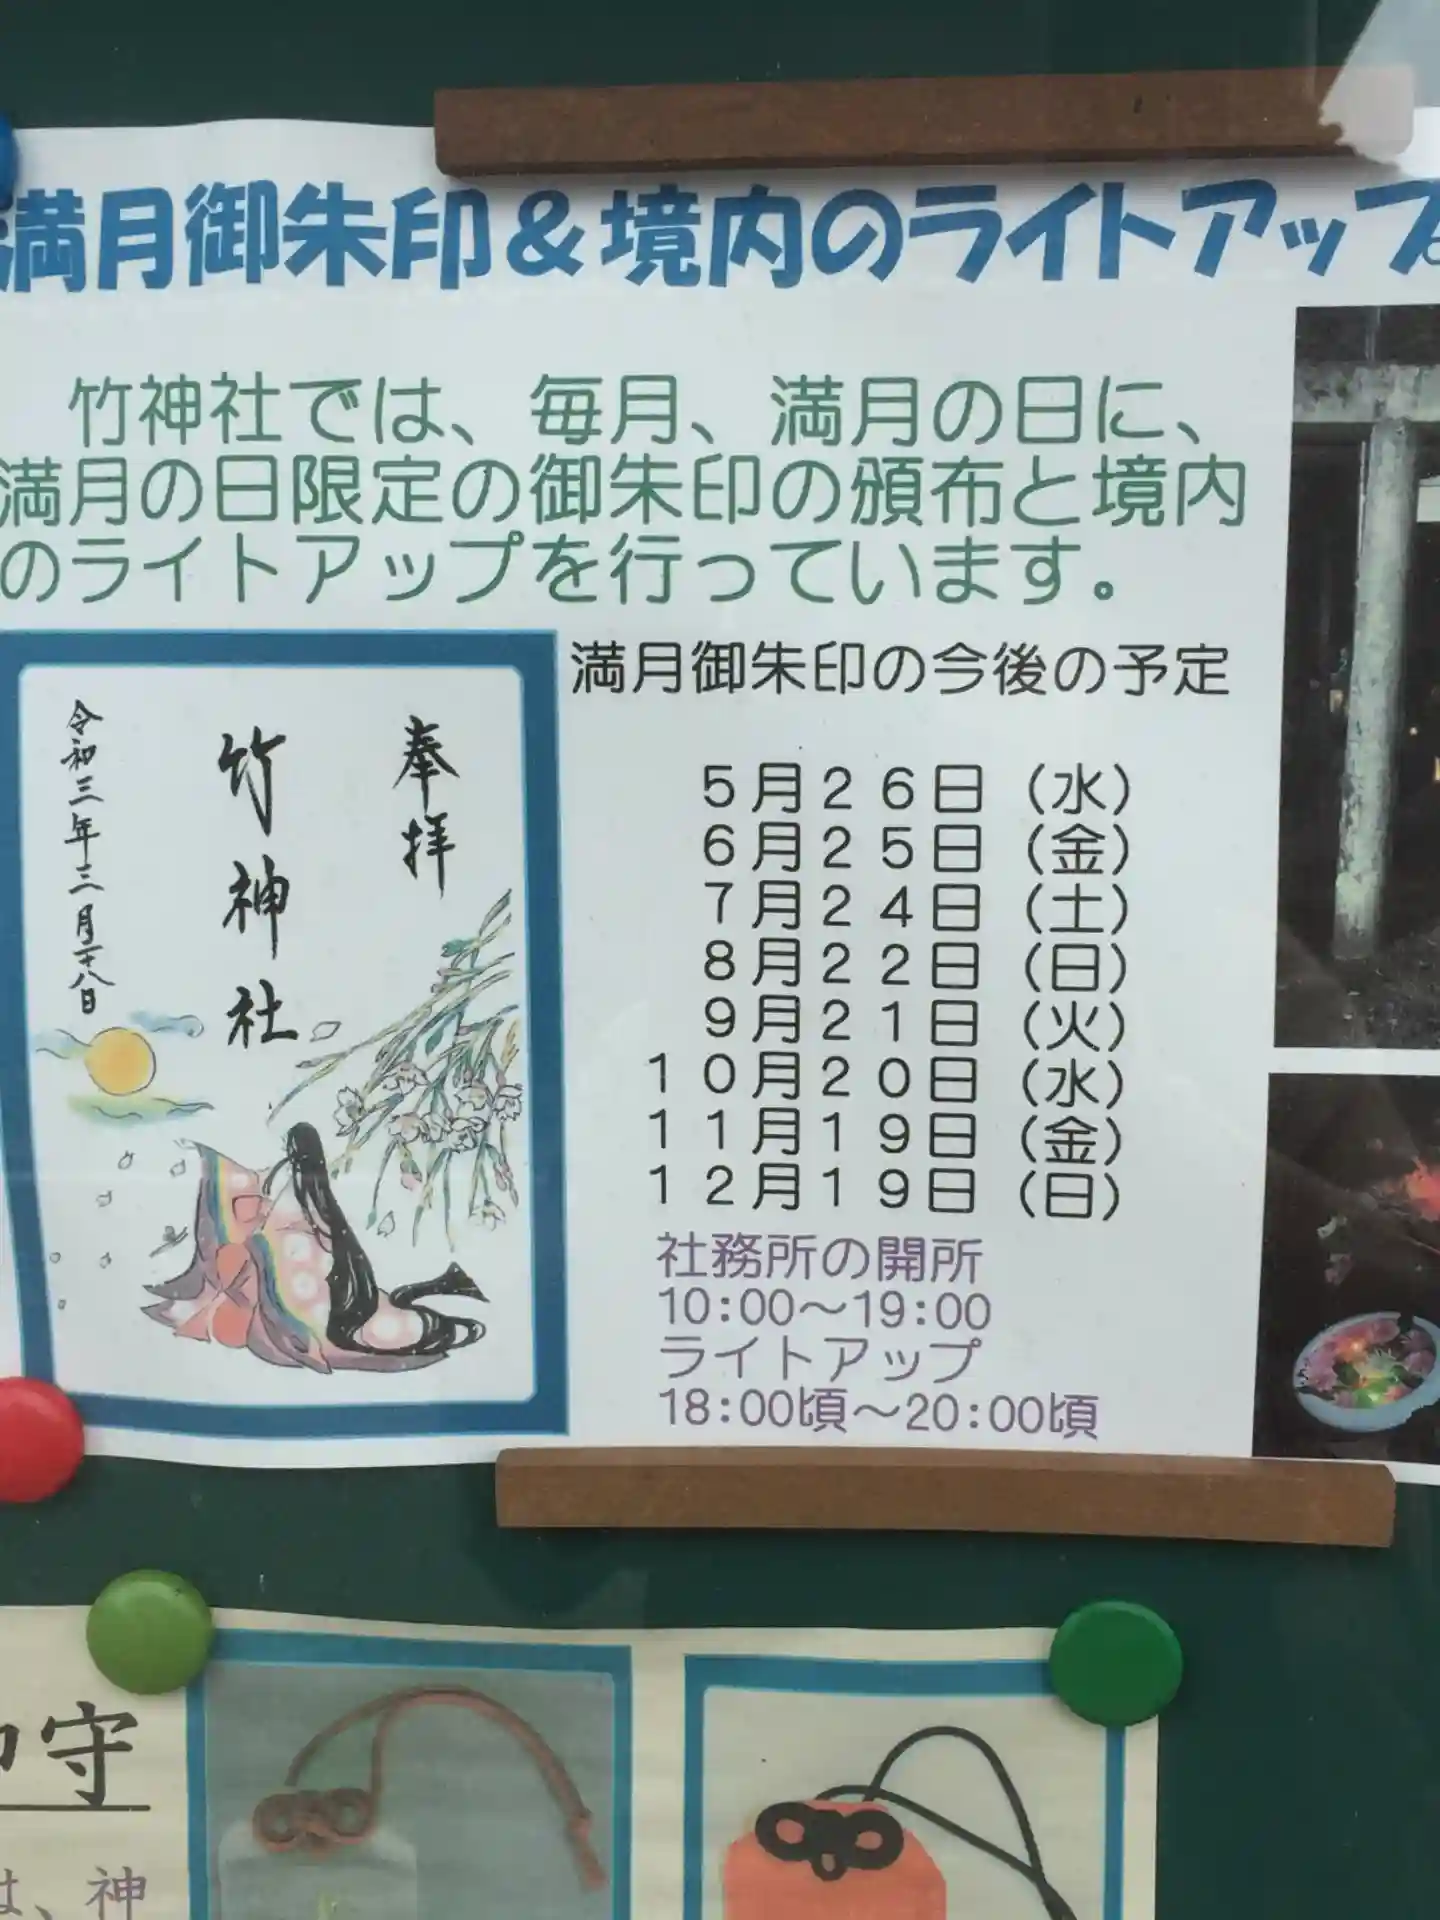 満月御朱印&境内のライトアップ
竹神社では、毎月、満月の日に、
満月の日限定の御朱印の頒布と境内
のライトアップを行っています。
奉拝
竹神社
令和三年三月二十八日
満月御朱印の今後の予定
5月26日（水）
6月25日（金）
7月24日（土）
8月22日（日）
9月21日（火）
10月20日（水）
11月19日（金）
12月19日（日）
社務所の開所
10:00～19:00
ライトアップ
18:00頃～20:00頃
守
は、神